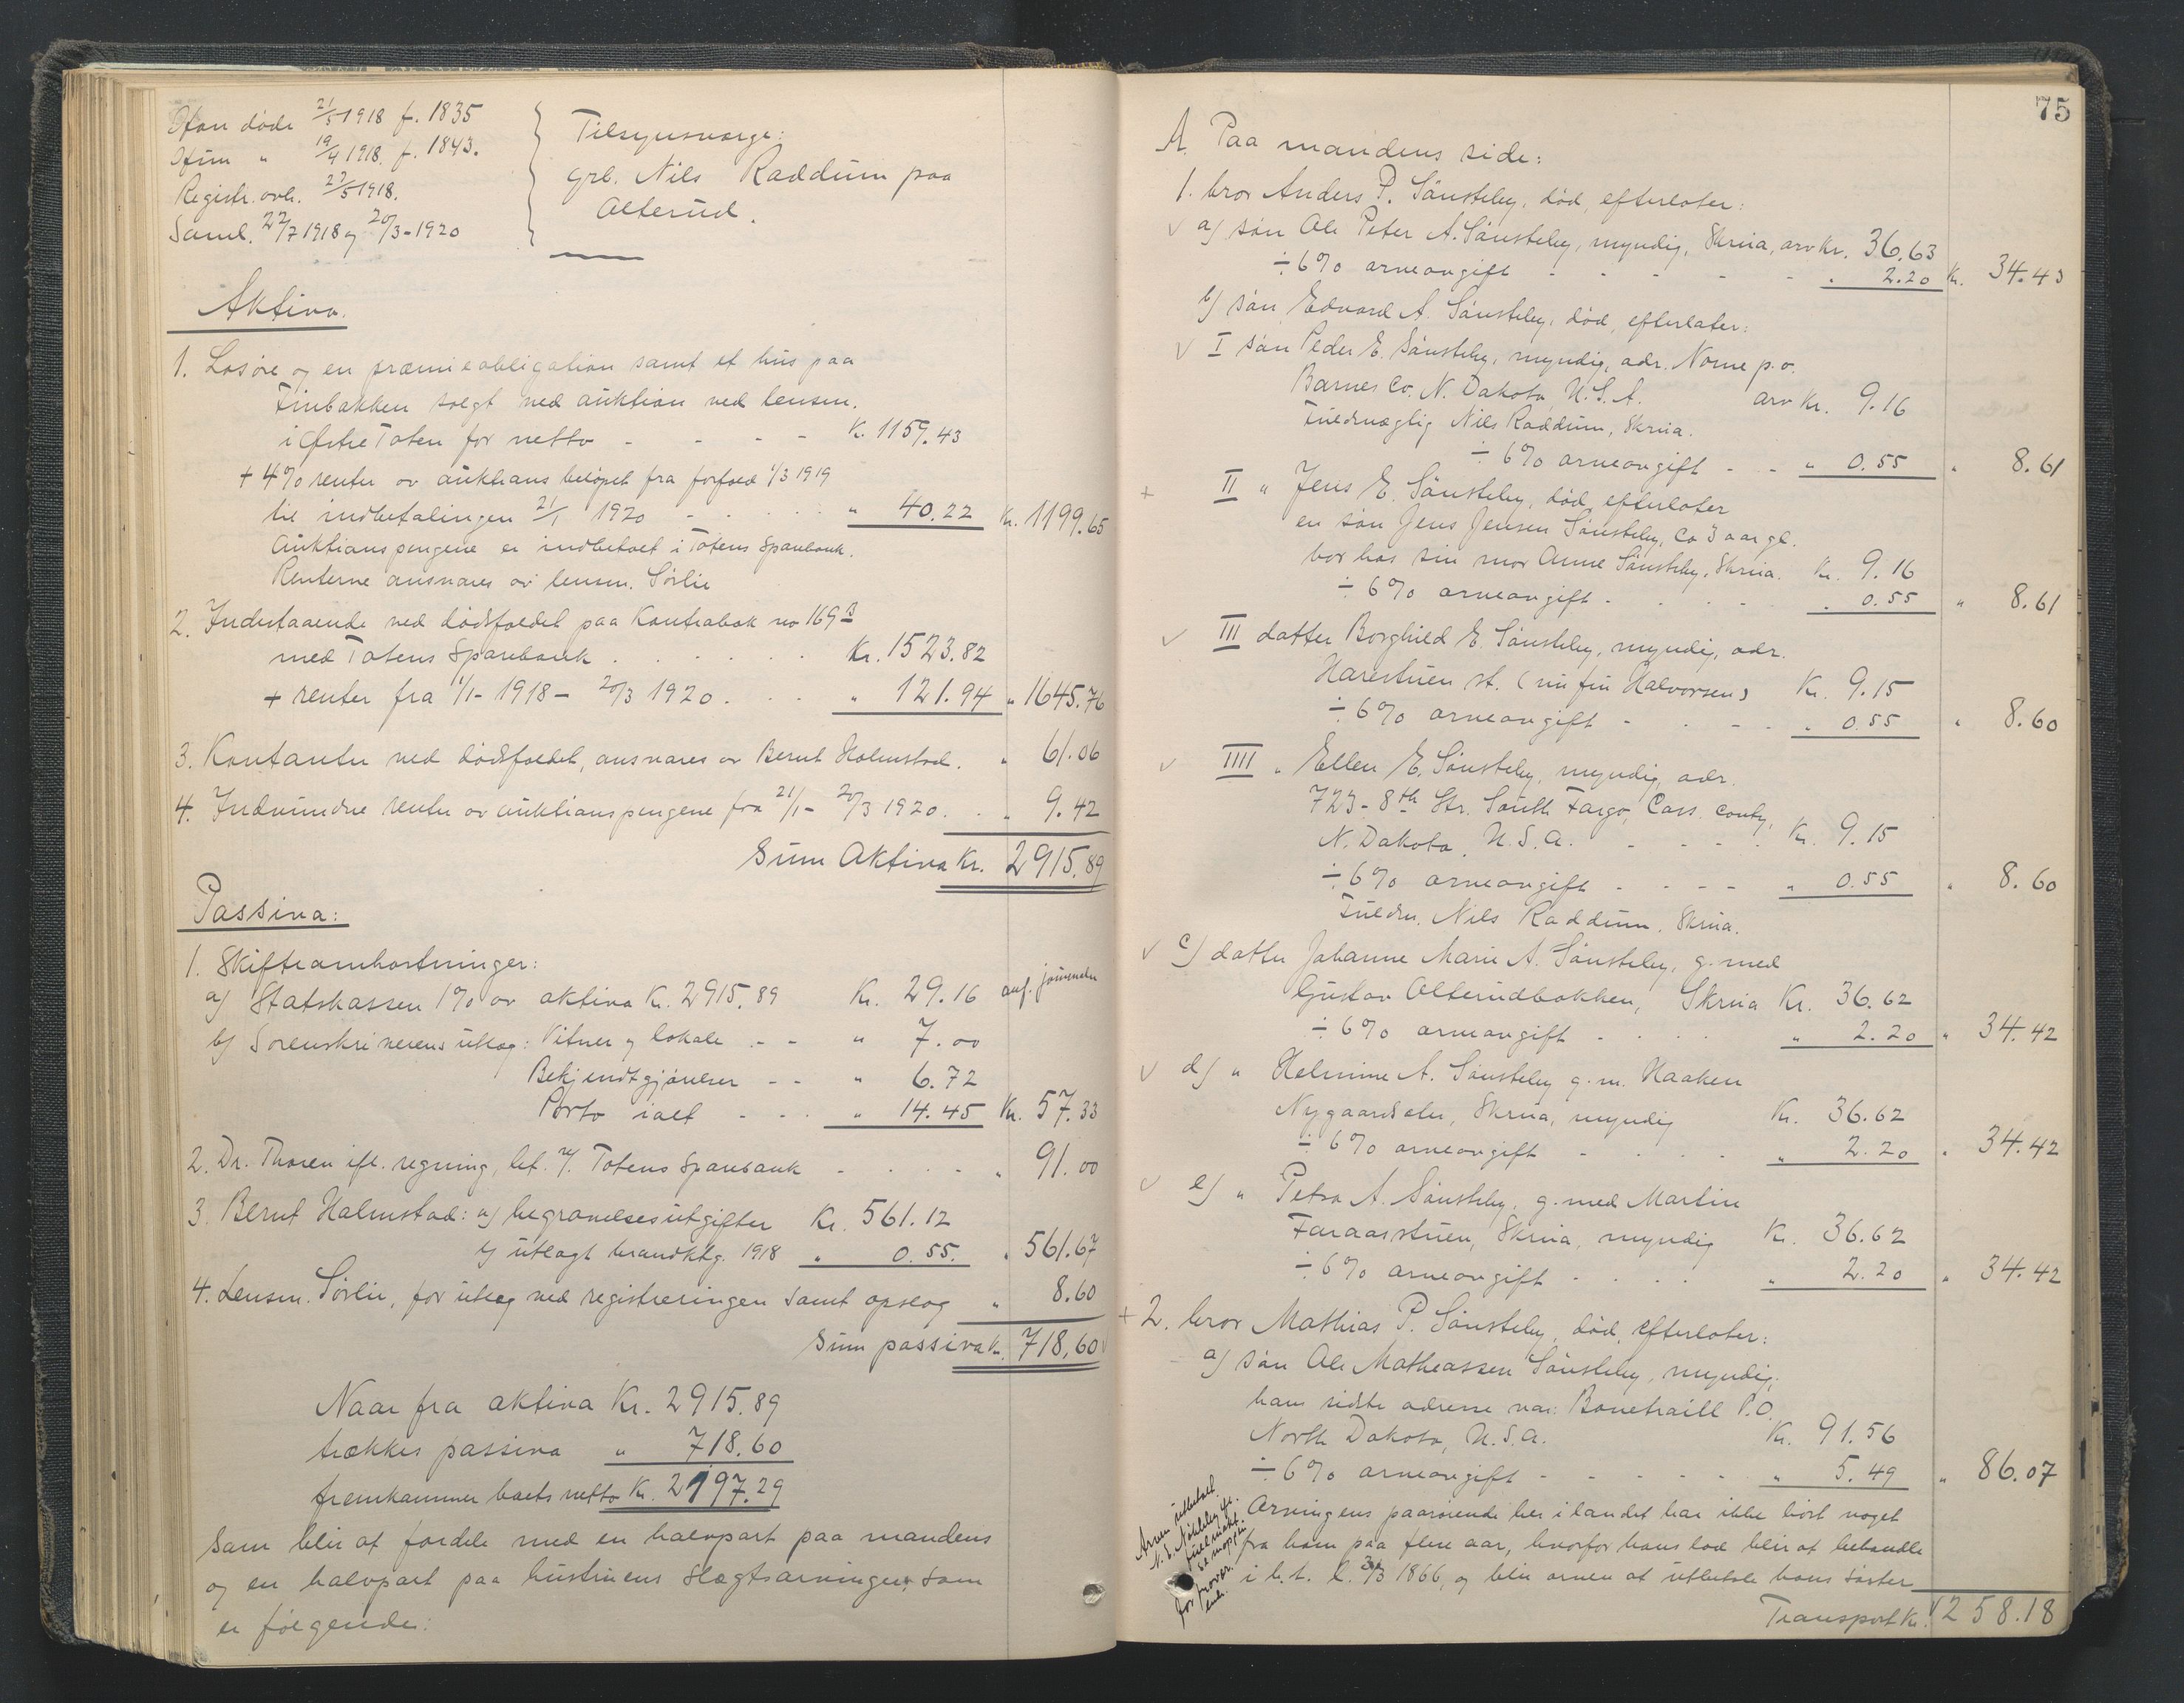 Han døde 21/5 1918 f. 1835
Hun " 19/4 1918. f. 1843.
Registr. avh. 27/5 1918.
Saml. 22/7 1918 og 20/3-1920
Tilsynsverge:
grb. Nils Raddum paa
Alterud.
Aktiva.
1. Løsøre og en præmieobligation samt et hus paa
Finbakken solgt ved auktion ved lensm.
i Østre Toten for netto - - - - K. 1159.43
+ 4% renter av auktionsbeløpet fra forfald 1/3 1919
til indbetalingen 21/1 1920 - - - - " 40.22 Kr. 1199.65
Auktionspengene er indbetalt i Totens Sparebank.
Renterne ansvares av lensm. Sørlie
2. Indestaaende ved dødsfaldet paa Kontrabok no 169 B
med Totens Sparebank . . . . . . Kr. 1523.82
+ renter fra 1/1- 1918 - 20/3 1920 . . . " 121.94 " 1645.76
3. Kontanter ved dødsfaldet, ansvares av Bernt Holmstad. " 61.06
4. Indvundne renter av auktionspengene fra 21/1 - 20/3 1920. . " 9.42
Sum Aktiva Kr. 2915.89
Passiva:
1. Skifteomkostninger:
a) Statskassen 1% av aktiva Kr. 2915.89 Kr. 29.16 anf. journalen
b) Sorenskriverens utlæg: Vitner og lokale - - " 7.00
Bekjendtgjørelser - - " 6.72
Porto ialt - - - " 14.45 Kr. 57.33
2. Dr. Thoren ifl. regning, bet. v/. Totens Sparebank - - - - " 91.00
3. Bernt Holmstad: a) begravelsesutgifter Kr. 561.12
b) utlagt brandktg. 1918 " 0.55. " 561.67
4. Lensm. Sørlie, for utlæg ved registreringen samt opslag " 8.60
Sum passiva Kr. 718.60
Naar fra aktiva Kr. 2915.89
trækkes passiva " 718.60
fremkommer boets netto Kr. 2197.29
som blir at fordele med en halvpart paa mandens
og en halvpart paa hustruens slægtsarvinger, som
er følgende:
75
A. Paa mandens side:
1. bror Anders P. Sønsteby, død, efterlater:
a) søn Ole Peter A. Sønsteby, myndig, Skreia, arv Kr. 36.63
÷ 6% arveavgift - - - - - " 2.20 Kr. 34.43
b) søn Edvard A. Sønsteby, død, efterlater:
I søn Peder E. Sønsteby, myndig, adr. Nome p.o.
Barnes Co. N. Dakota, U.S.A. arv Kr. 9.16
Fuldmægtig Nils Raddum, Skreia.
÷ 6% arveavgift - - " 0.55 " 8.61
+ II " Jens E. Sønsteby, død, efterlater
en søn Jens Jensen Sønsteby, ca 3 aar gl.
bor hos sin mor Anne Sønsteby, Skreia. Kr. 9.16
÷ 6% arveavgift - . . . . " 0.55 " 8.61
III datter Borghild E. Sønsteby, myndig, adr.
Harestuen st. (nu fru Halvorsen) Kr. 9.15
÷ 6% arveavgift - . - - " 0.55 " 8.60
IIII " Ellen E. Sønsteby, myndig, adr.
723 - 8th Str. South Fargo, Cass. conty,
N. Dakota, U.S.A. - - - - Kr. 9.15
÷ 6% arveavgift - - - - " 0.55 " 8.60
Fuldm. Nils Raddum. Skreia.
c) datter Johanne Marie A. Sønsteby, g. med
Gustav Alterudbakken, Skreia Kr. 36.62
÷ 6% arveavgift - . . . " 2.20 " 34.42
d) " Helmine A. Sønsteby g.m. Haaken
Nygaardseter, Skreia, myndig Kr. 36.62
÷ 6% arveavgift - . . . " 2.20 " 34.42
e) " Petra A. Sønsteby, g. med Martin
Faraasstuen, Skreia, myndig Kr. 36.62
÷ 6% arveavgift - . . . " 2.20 " 34.42
+ 2. bror Mathias P. Sønsteby, død, efterlater:
a) søn Ole Matheassen Sønsteby, myndig,
hans sidste adresse var: Bonetraill P.O.
North Dakota, U.S.A. Kr. 91.56
÷ 6% arveavgift - - - - - " 5.49 " 86.07
Arvingens paarørende her i landet har ikke hørt noget
fra ham paa flere aar, hvorfor hans lod blir at behandle
i h.t. l. 3/3 1866, og blir arven at utbetale hans søster
Arven utbetalt
fuldmakt.
Transport Kr. 258.18